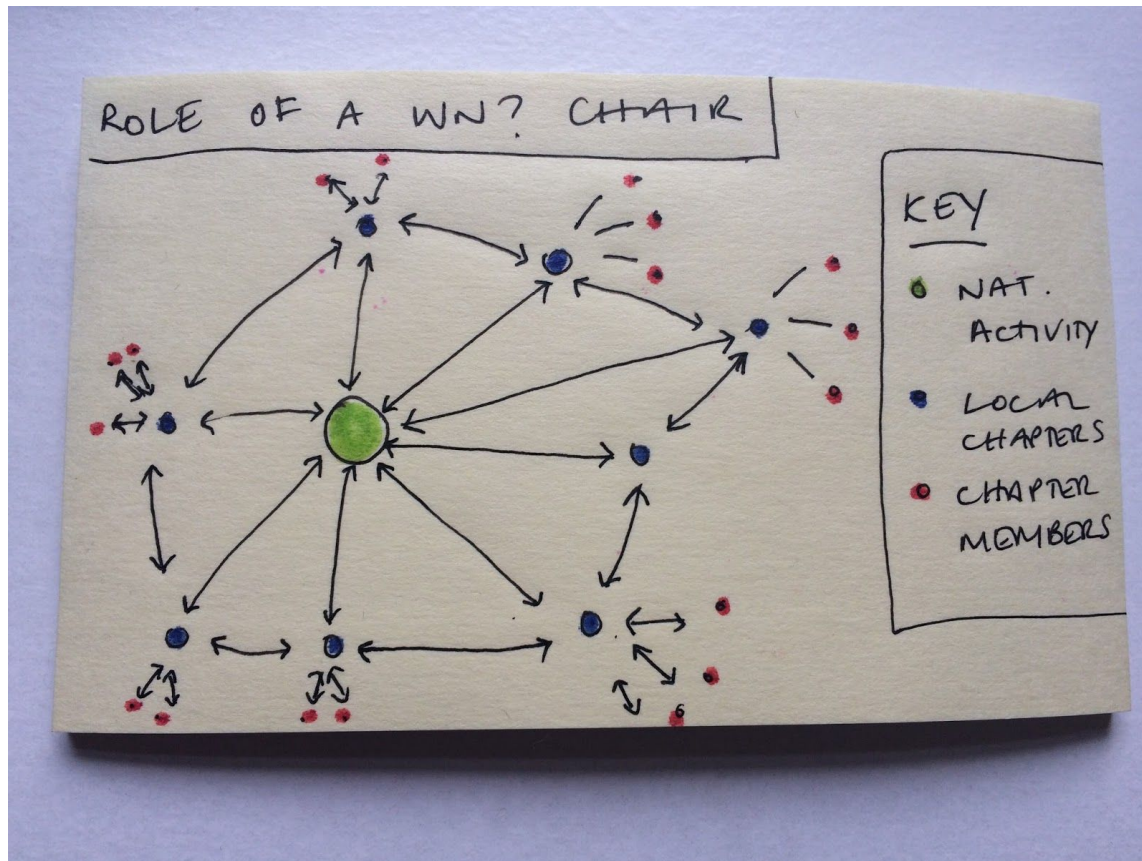 ROLE OF A WN? CHAIR
KEY
NAT.
ACTIVITY
LOCAL
CHAPTERS
CHAPTER
MEMBERS